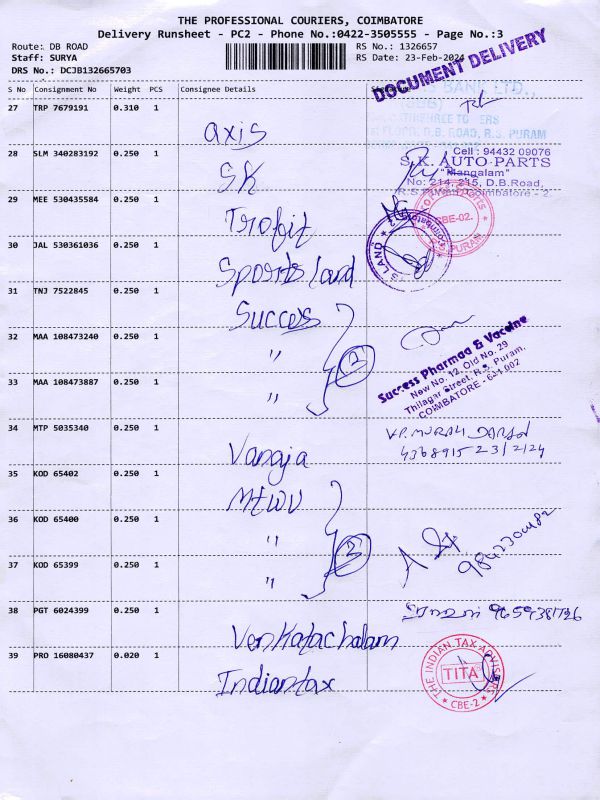 THE PROFESSIONAL COURIERS, COIMBATORE
Delivery Runsheet - PC2 - Phone No.:0422-3505555 - Page No.:3
Route: DB ROAD
Staff: SURYA
DRS No.: DCJB132665703
RS No.: 1326657
RS Date: 23-Feb-2024
DOCUMENT DELIVERY
S No Consignment No Weight PCS Consignee Details
27 TRP 7679191 0.310 1 axis
BANK LTD.,
D.B. ROAD, R.S. PURAM
28 SLM 340283192 0.250 1 SK
Cell : 94432 09076
S.K. AUTO PARTS
"Mangalam"
No: 214, 215, D.B.Road,
R.S. Puram, Coimbatore - 2.
29 MEE 530435584 0.250 1 Trofit
CBE-02.
R.S. PURAM
30 JAL 530361036 0.250 1 Sports land
31 TNJ 7522845 0.250 1 Success
32 MAA 108473240 0.250 1 "
33 MAA 108473887 0.250 1 "
Success Pharmaa & Vaccine
New No. 12, Old No. 29
Thilagar Street, R.S. Puram,
COIMBATORE - 641 002
34 MTP 5035340 0.250 1 Vanaja
V.P. MURALI DARAN
23/2/24
35 KOD 65402 0.250 1
36 KOD 65400 0.250 1 "
37 KOD 65399 0.250 1 "
38 PGT 6024399 0.250 1 Venkatachalam
39 PRO 16080437 0.020 1 Indiantax
THE INDIAN TAX ADVISERS
TITA
* CBE-2 *